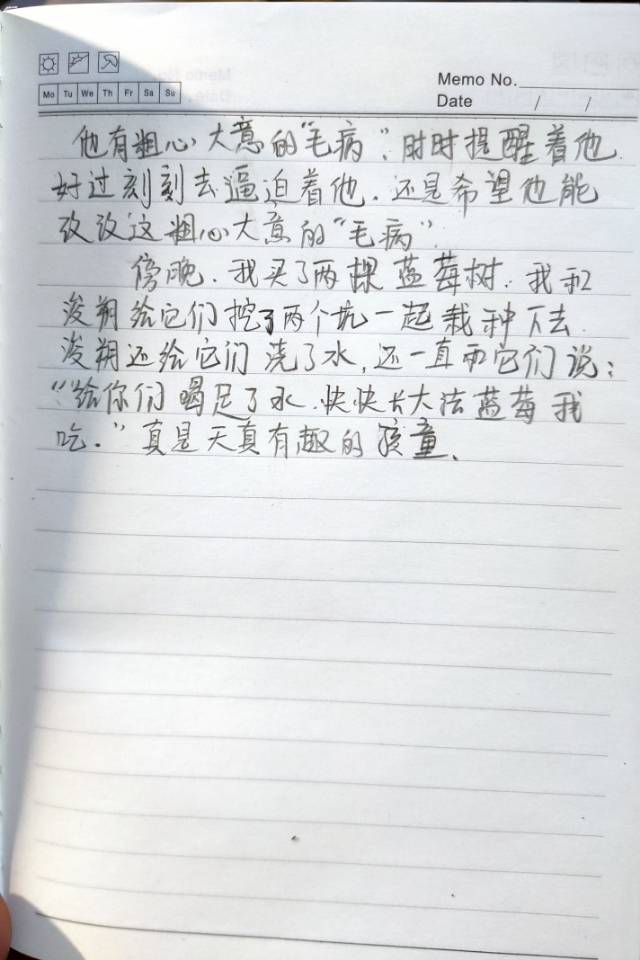 Memo No.
Mo Tu We Th Fr Sa Su
Date / /
他有粗心大意的"毛病",时时提醒着他
好过刻刻去逼迫着他.还是希望他能
改改这粗心大意的"毛病".
傍晚.我买了两棵蓝莓树.我和
浚朔给它们挖了两个坑一起栽种下去.
浚朔还给它们浇了水,还一直而它们说:
"给你们喝足了水.快快长大法蓝莓我
吃."真是天真有趣的孩童.